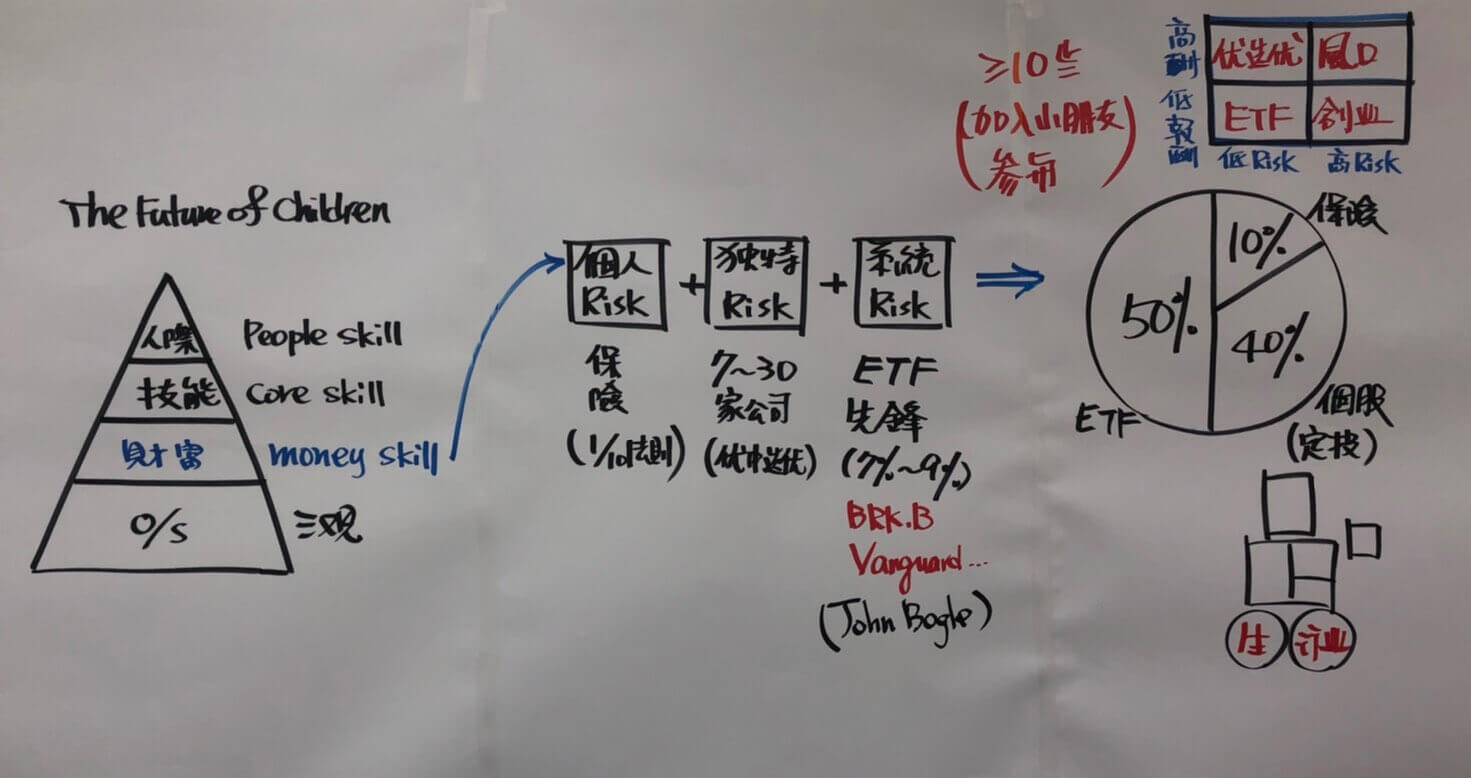 The Future of Children
人際 People skill
技能 Core skill
財富 money skill
O/S 三观
個人
Risk
+
独特
Risk
+
系統
Risk
保
險
(1/10法則)
7~30
家公司
(优中选优)
ETF
先鋒
(7%~9%)
BRK.B
Vanguard...
(John Bogle)
≥10
(加入小朋友
参与)
高
酬
低
報
酬
优选优
ETF 创业
低Risk 高Risk
保險
10%
50%
40%
ETF
個股
(定投)
生